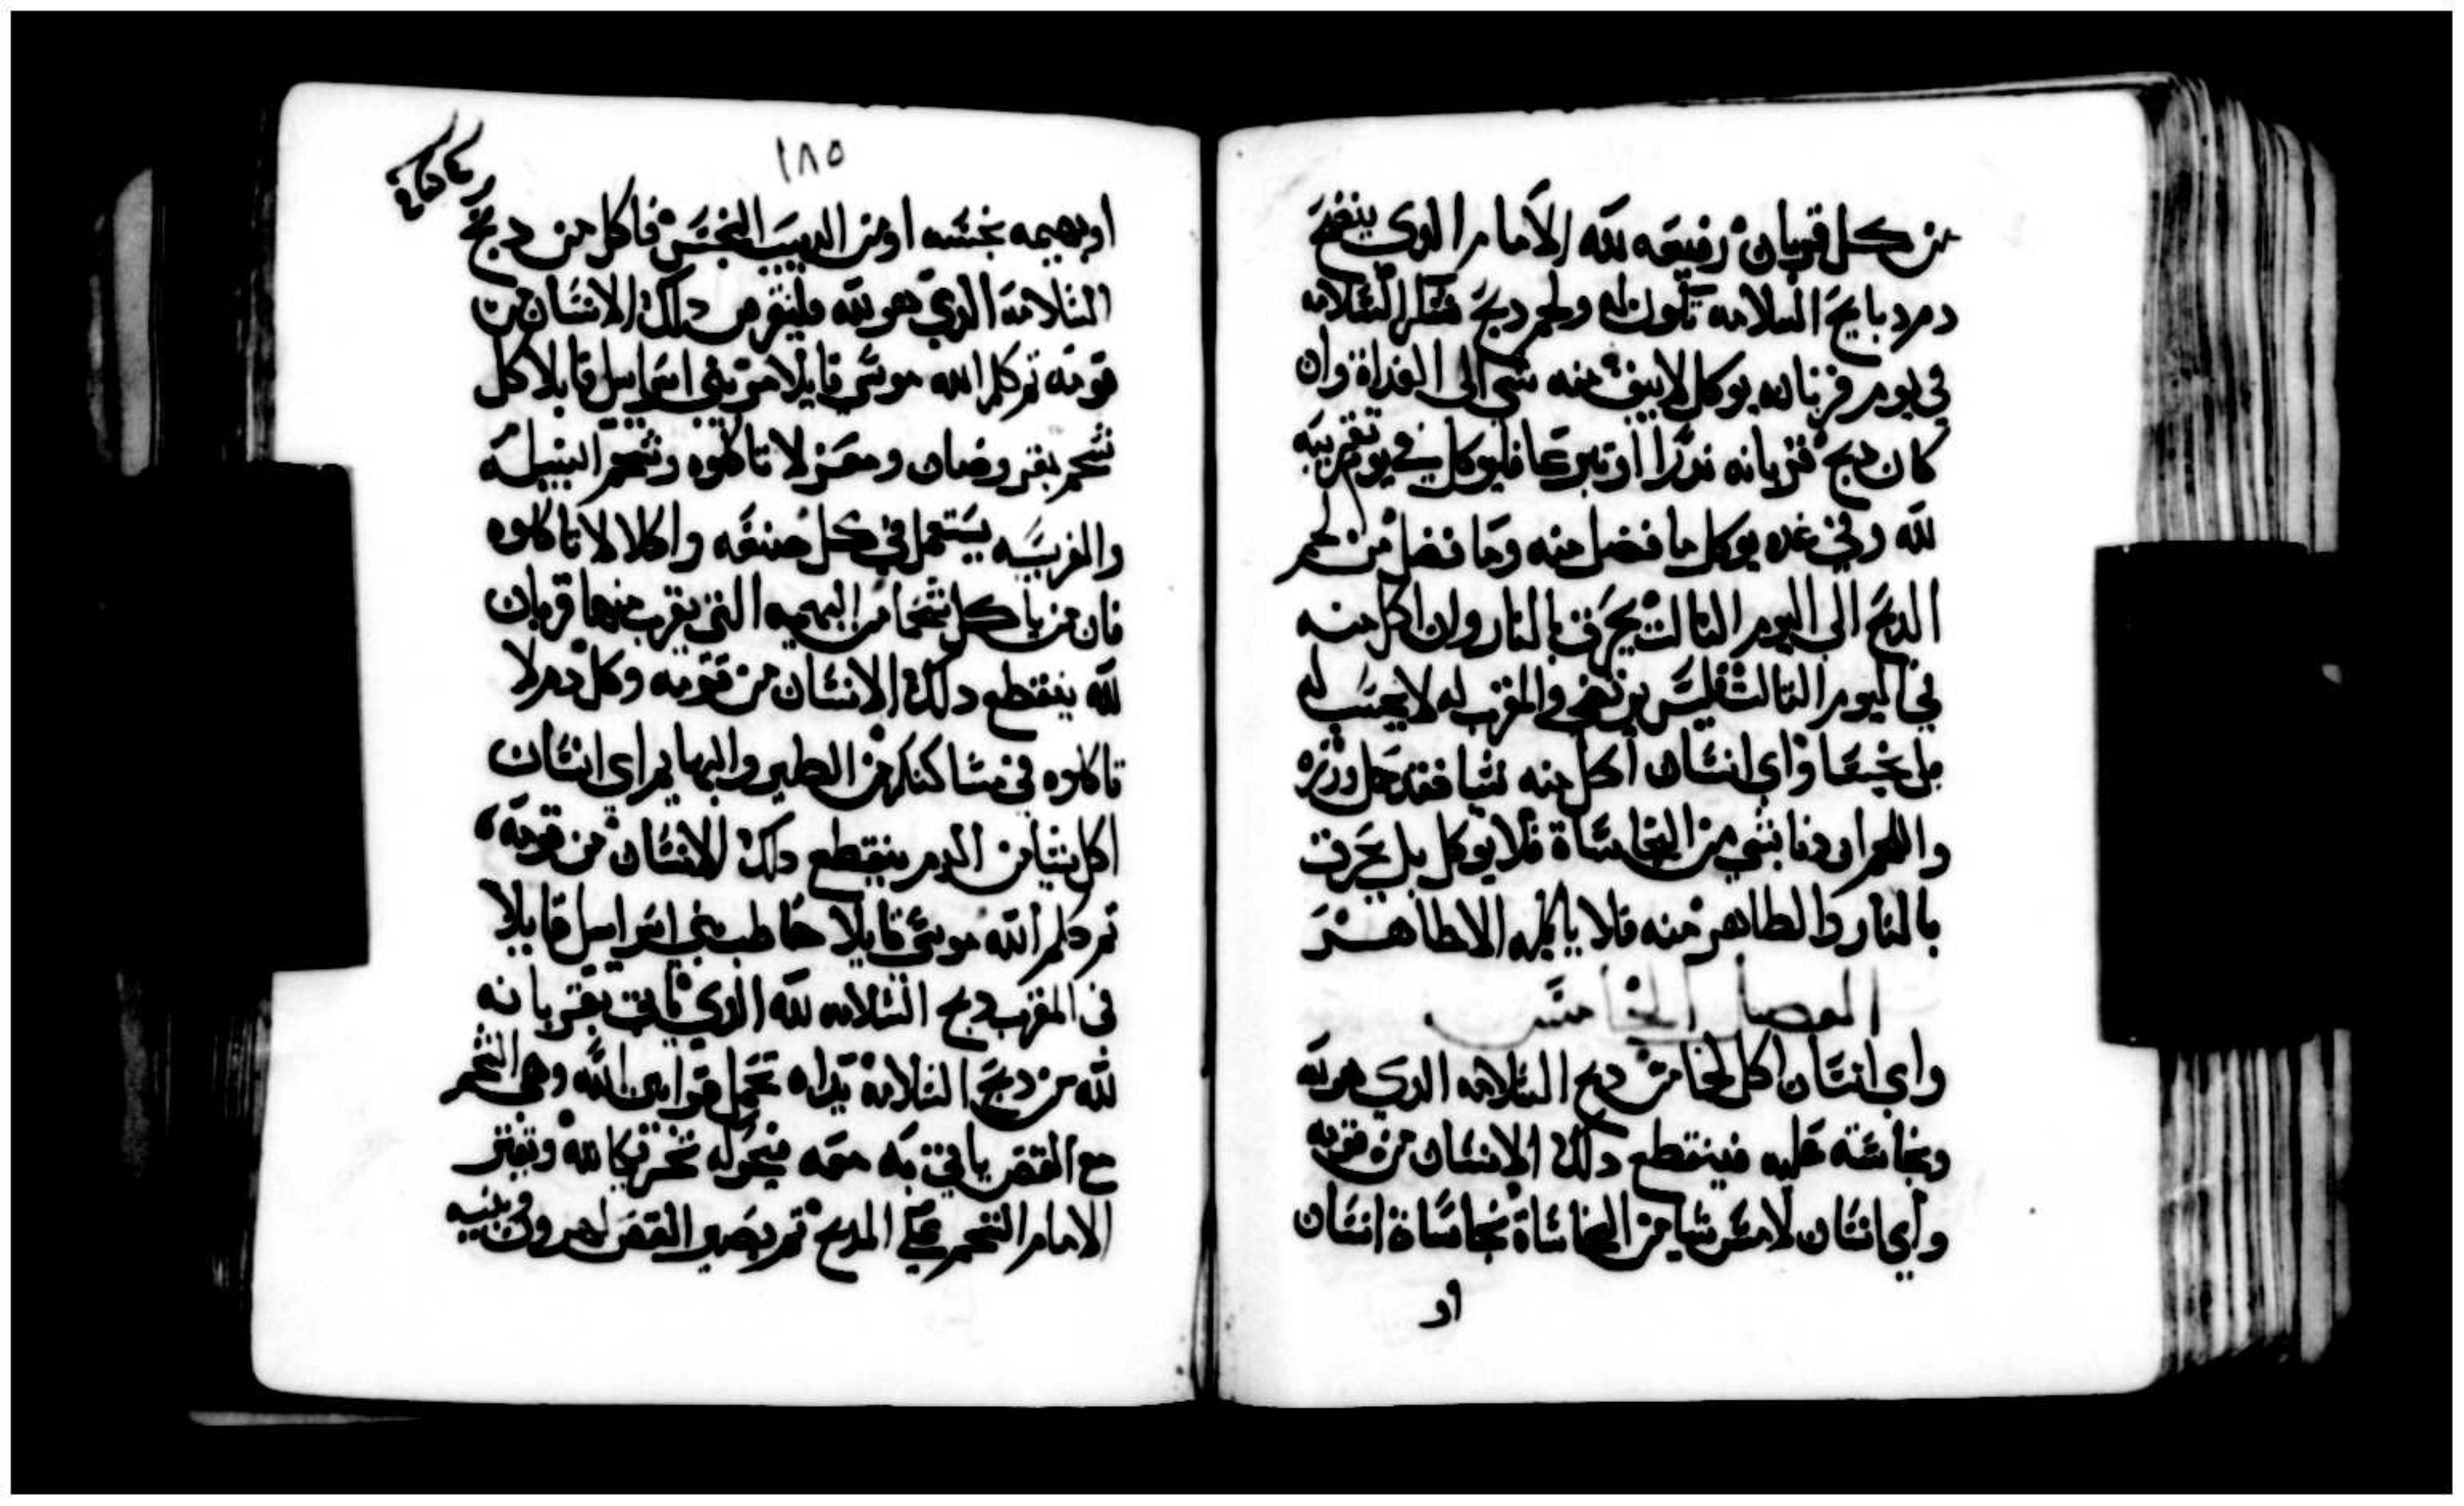 من كل قربان رفيعه لله الامام الدي ينضح
دم دبايح السلامه تكون له ولحم دبح شكر السلامه
في يوم قربانه يوكل لا يبق منه شي الى الغداة وان
كان دبح قربانه ندرا او تبرعا فليوكل في يوم تقريبه
لله وفي غده يوكل ما فضل منه وما فضل من لحم
الدبح الى اليوم التالت يحرق بالنار وان اكل منه
في اليوم التالت فليس يرتضي والمقرب له لا يحسب له
بل نجسا واي انسان اكل منه شيا فقد حمل وزره
واللحم ان دنا بشي من النجاساة فلا يوكل بل يحرق
بالنار والطاهر منه فلا ياكله الا طاهر
الفصل الخامس
واي انسان اكل لحما من دبح السلامه الدي هو لله
ونجاسته عليه فينقطع دلك الانسان من قومه
واي انسان لامس شيا من النجاساة نجاساة انسان
او
١٨٥
او بهيمه نجسه او من الدبيب النجس فاكل من دبح
السلامة الدي هو لله فلينقرض دلك الانسان من
قومه تم كلم الله موسى قايلا مر بني اسراييل قايلا كل
شحم بقر وضان ومعز لا تاكلوه وشحم النبيله
والفريسه يستعمل في كل صنعه واكلا لا تاكلوه
فان من ياكل شحما من البهيمه التي يقرب منها قربان
لله ينقطع دلك الانسان من قومه وكل دم لا
تاكلوه في مساكنكم من الطير والبهايم اي انسان
اكل شيا من الدم ينقطع دلك الانسان من قومه
تم كلم الله موسى قايلا خاطب بني اسراييل قايلا
في المقرب دبح السلامه لله الذي ياتي بقربانه
لله من دبح السلامة يداه تحمل قرابين الله وهي الشحم
مع القص ياتي به معه فيحركه تحريكا لله ويقتر
الامام الشحم على المدبح تم يصير القص لهرون وبنيه